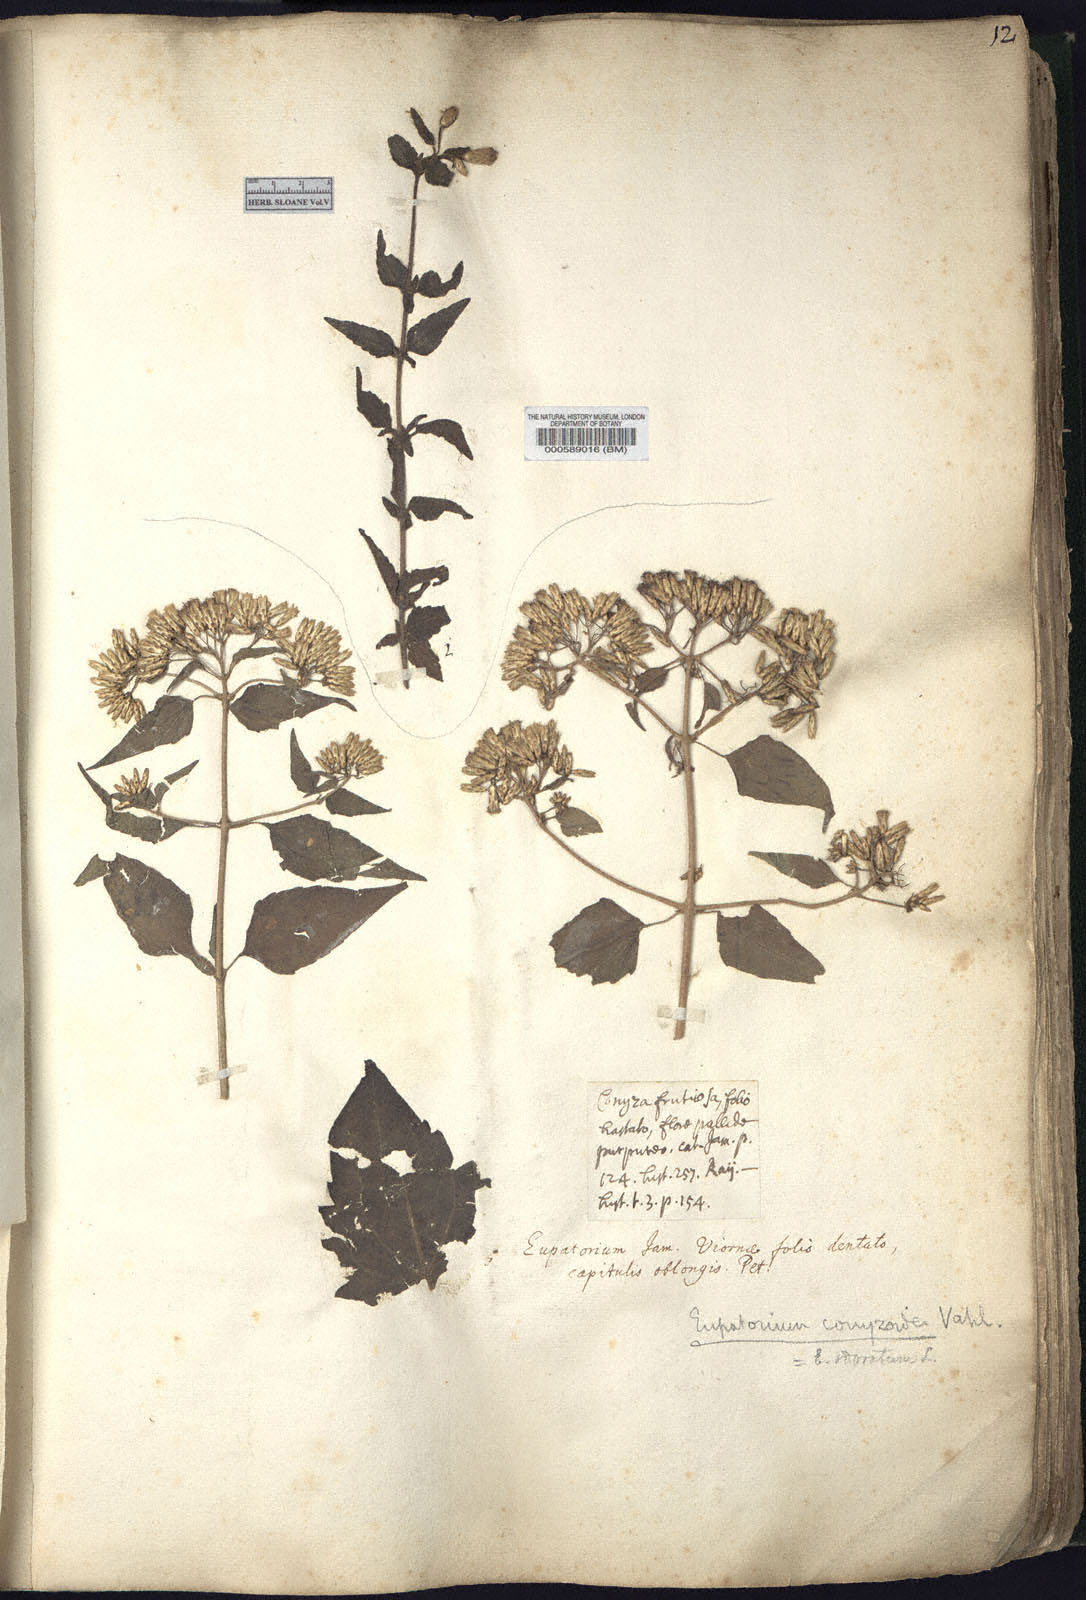 12
0 2 4
HERB. SLOANE Vol.V
THE NATURAL HISTORY MUSEUM, LONDON
DEPARTMENT OF BOTANY
000589016 (BM)
2
Conyza fruticosa, folio
hastato, flore pallide
purpureo. cat. Jam. p.
124. hist. 257. Raij.—
hist. t. 3. p. 154.
Eupatorium Jam. Viornæ folio dentato,
capitulis oblongis. Pet.
Eupatorium conyzoides Vahl.
= E. odoratum L.